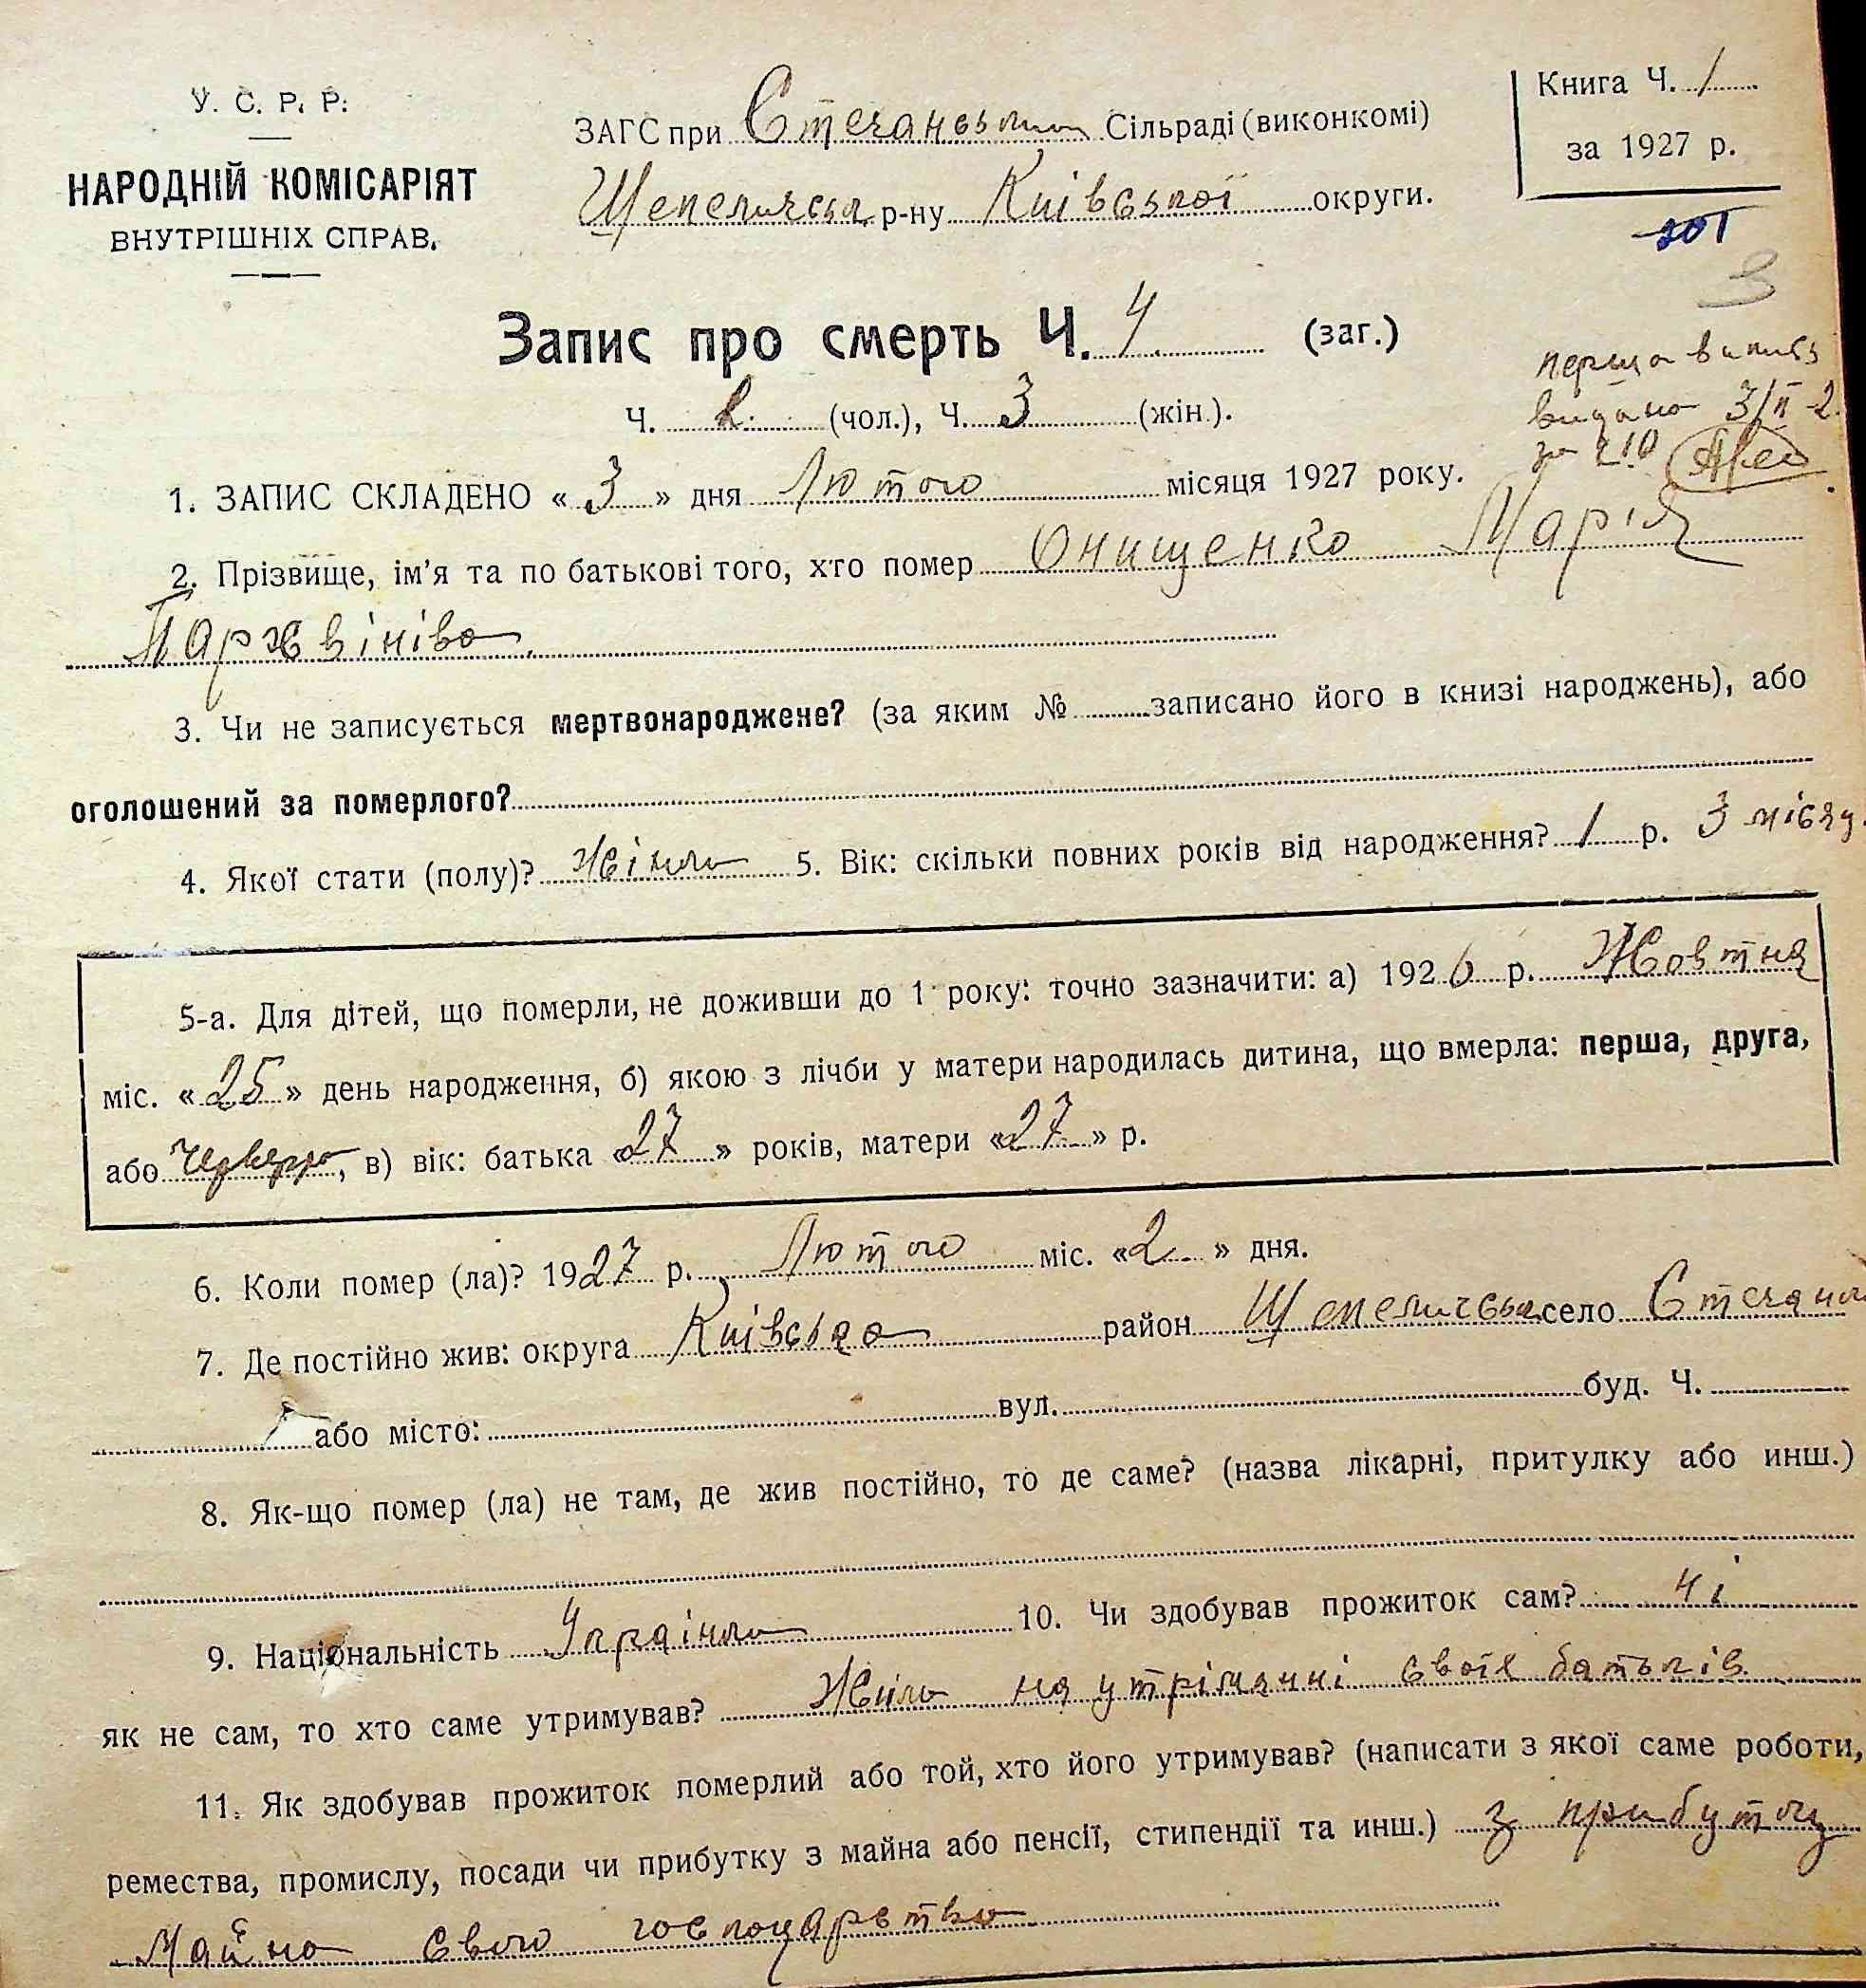 У. С. Р. Р.
НАРОДНІЙ КОМІСАРІЯТ
ВНУТРІШНІХ СПРАВ.
ЗАГС при Стечанськом Сільраді (виконкомі)
Шепелическа р-ну Київської округи.
Книга Ч. 1
за 1927 р.
201
3
Запис про смерть Ч. 4 (заг.)
Ч. (чол.), Ч. 3 (жін.).
перша випись
видано 3/II-2
1. ЗАПИС СКЛАДЕНО «3» дня Лютого місяця 1927 року.
2. Прізвище, ім'я та по батькові того, хто помер Онищенко Марія
Пархвінівa.
3. Чи не записується мертвонароджене? (за яким № записано його в книзі народжень), або
оголошений за померлого?
4. Якої стати (полу)? жіноча 5. Вік: скільки повних років від народження? 1 р. 3 місяц.
5-а. Для дітей, що померли, не доживши до 1 року: точно зазначити: а) 1926 р. Жовтня
міс. «25» день народження, б) якою з лічби у матери народилась дитина, що вмерла: перша, друга,
або , в) вік: батька «27» років, матери «27» р.
6. Коли помер (ла)? 1927 р. Лютого міс. «2» дня.
7. Де постійно жив: округа Київська район Шепелическа село Стечанка
або місто: вул. буд. Ч.
8. Як-що помер (ла) не там, де жив постійно, то де саме? (назва лікарні, притулку або инш.)
9. Національність Україн 10. Чи здобував прожиток сам? ні
як не сам, то хто саме утримував? Жила на утріманні своїх батьків
11. Як здобував прожиток померлий або той, хто його утримував? (написати з якої саме роботи,
ремества, промислу, посади чи прибутку з майна або пенсії, стипендії та инш.) з прибутку
Майна свого господарства